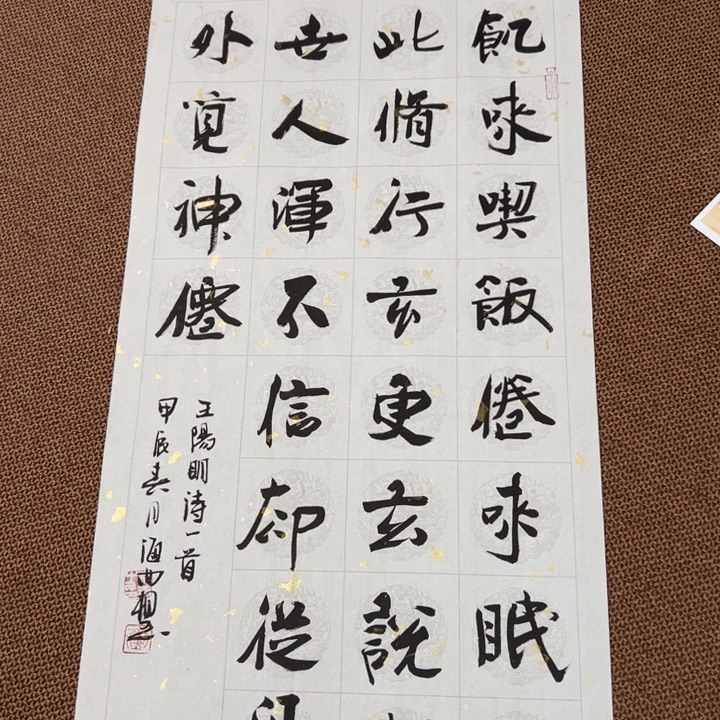 飢來喫飯倦來眠
此脩行玄更玄說
世人渾不信却從
外覓神僊
王陽明诗一首
甲辰春月